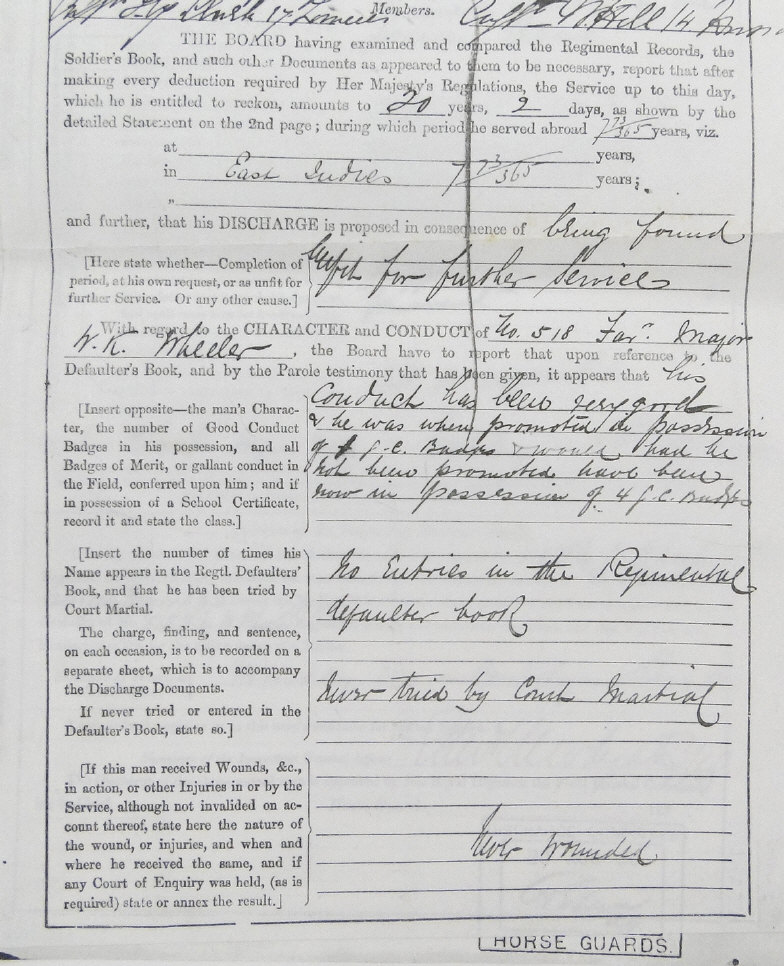 Members.
17 Lancers Capt. Hill 14
THE BOARD having examined and compared the Regimental Records, the
Soldier's Book, and such other Documents as appeared to them to be necessary, report that after
making every deduction required by Her Majesty's Regulations, the Service up to this day,
which he is entitled to reckon, amounts to 20 years, 2 days, as shown by the
detailed Statement on the 2nd page; during which period he served abroad 7 73/365 years, viz.
at years,
in East Indies 7 73/365 years;
„
and further, that his DISCHARGE is proposed in consequence of being found
[Here state whether—Completion of
period, at his own request, or as unfit for
further Service. Or any other cause.]
unfit for further Service
With regard to the CHARACTER and CONDUCT of No. 518 Far. Major
W. K. Wheeler, the Board have to report that upon reference to the
Defaulter's Book, and by the Parole testimony that has been given, it appears that his
[Insert opposite—the man's Charac-
ter, the number of Good Conduct
Badges in his possession, and all
Badges of Merit, or gallant conduct in
the Field, conferred upon him; and if
in possession of a School Certificate,
record it and state the class.]
Conduct has been very good
& he was when promoted in possession
of G.C. Badges & would had he
not been promoted have been
now in possession of 4 G.C. Badges
[Insert the number of times his
Name appears in the Regtl. Defaulters'
Book, and that he has been tried by
Court Martial.
The charge, finding, and sentence,
on each occasion, is to be recorded on a
separate sheet, which is to accompany
the Discharge Documents.
If never tried or entered in the
Defaulter's Book, state so.]
No Entries in the Regimental
defaulter book
Never tried by Court Martial
[If this man received Wounds, &c.,
in action, or other Injuries in or by the
Service, although not invalided on ac-
count thereof, state here the nature of
the wound, or injuries, and when and
where he received the same, and if
any Court of Enquiry was held, (as is
required) state or annex the result.]
Never wounded
HORSE GUARDS.